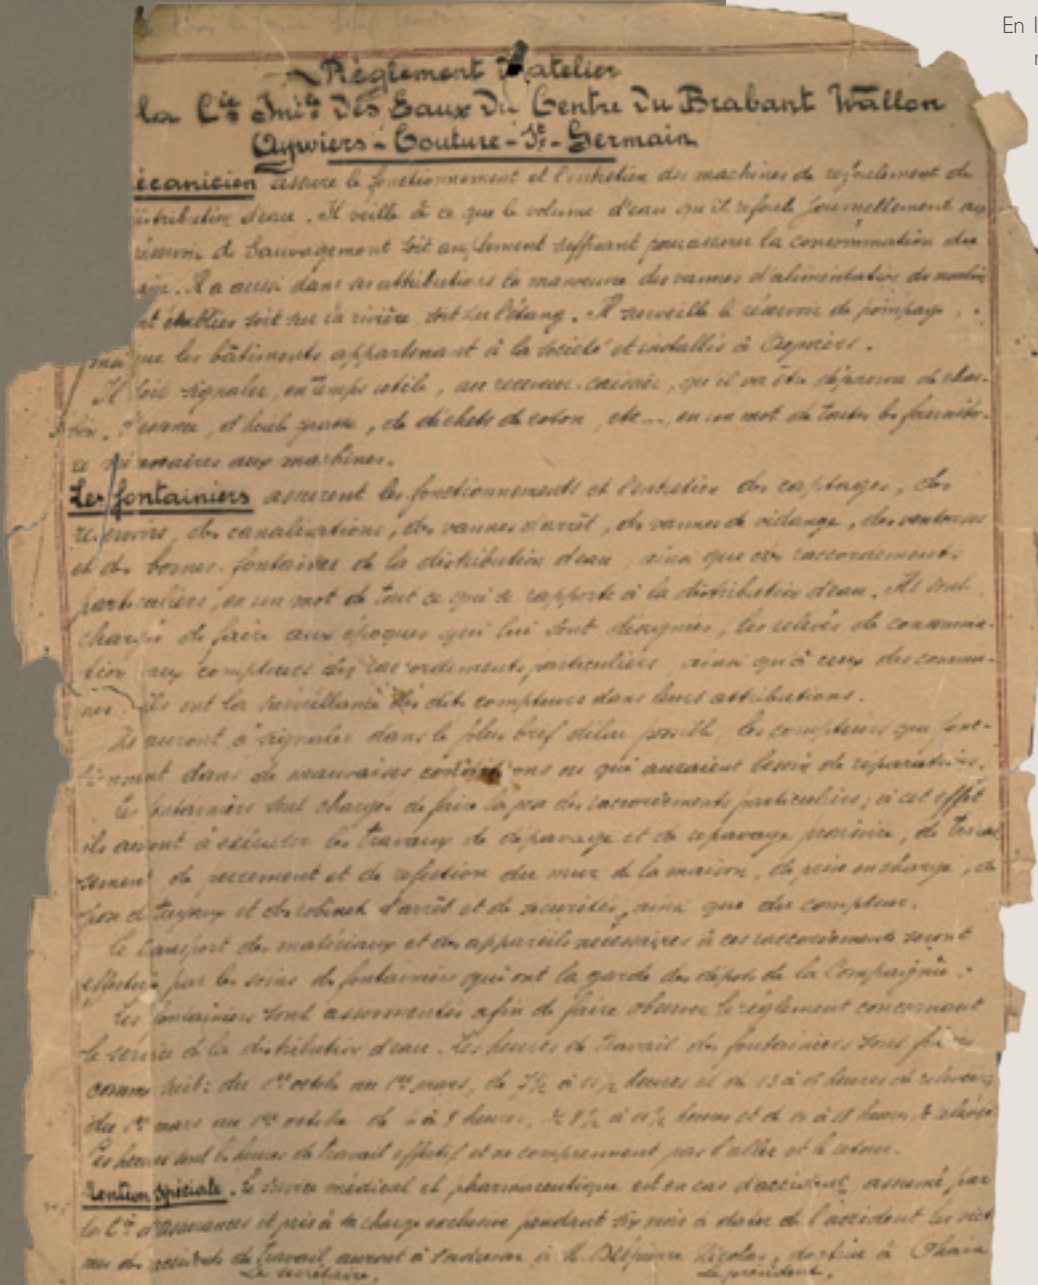 En l
Règlement d'atelier
la Cie Imle Des Eaux Du Centre Du Brabant Wallon
Aywiers - Couture - St - Germain
écanicien assure le fonctionnement et l'entretien des machines de refoulement de
distribution d'eau. Il veille à ce que le volume d'eau qu'il refoule journellement au
réservoir de Sauvagemont soit amplement suffisant pour assurer la consommation du
Il a aussi dans ses attributions la manoeuvre des vannes d'alimentation du moulin
nt établies soit sur la rivière, soit sur l'étang. Il surveille le réservoir de pompage,
ainsi que les bâtiments appartenant à la société et installés à Aywiers.
Il doit signaler, en temps utile, au receveur-caissier, qu'il va être dépourvu de char-
bon, d'essence, d'huile, graisse, de déchets de coton, etc..., en un mot de toutes les fournitu-
res nécessaires aux machines.
Les fontainiers assurent les fonctionnements et l'entretien des captages, des
réservoirs, des canalisations, des vannes d'arrêt, des vannes de vidange, des ventouses
et des bornes-fontaines de la distribution d'eau, ainsi que des raccordements
particuliers, en un mot de tout ce qui se rapporte à la distribution d'eau. Ils sont
chargés de faire aux époques qui lui sont désignées, les relevés de consomma-
tion aux compteurs des raccordements particuliers, ainsi qu'à ceux des commu-
nes. Ils ont la surveillance des dits compteurs dans leurs attributions.
Ils auront à signaler dans le plus bref délai possible, les compteurs qui fonc-
tionnent dans de mauvaises conditions ou qui auraient besoin de réparations.
Les fontainiers sont chargés de faire la pose des raccordements particuliers; à cet effet
ils auront à exécuter les travaux de dépavage et de repavage provisoire, de terras
sement de percement et de réfection du mur de la maison, de prise en charge, de
pose de tuyaux et des robinets d'arrêt et de sécurités, ainsi que du compteur.
Le transport des matériaux et des appareils nécessaires à ces raccordements seront
effectués par les soins de fontainiers qui ont la garde des dépôts de la Compagnie.
Les fontainiers sont assermentés afin de faire observer le règlement concernant
le service de la distribution d'eau. Les heures de travail des fontainiers sont fixées
comme suit: du 1er octobre au 1er mars, de 7½ à 11½ heures et de 13 à heures
du 1er mars au 1er octobre de à 8 heures, de 8½ à 11½ heures et de à 18 heures
Ces heures sont les heures de travail effectif et ne comprennent pas l'aller et le retour.
Mention Spéciale. Le service médical et pharmaceutique est en cas d'accident, assumé par
la Cie d'assurances et pris à sa charge exclusive pendant six mois à dater de l'accident les victi
mes des accidents de travail, auront à s'adresser à M. Delpierre Nicolas, docteur à Ohain
Le secrétaire, Le président,